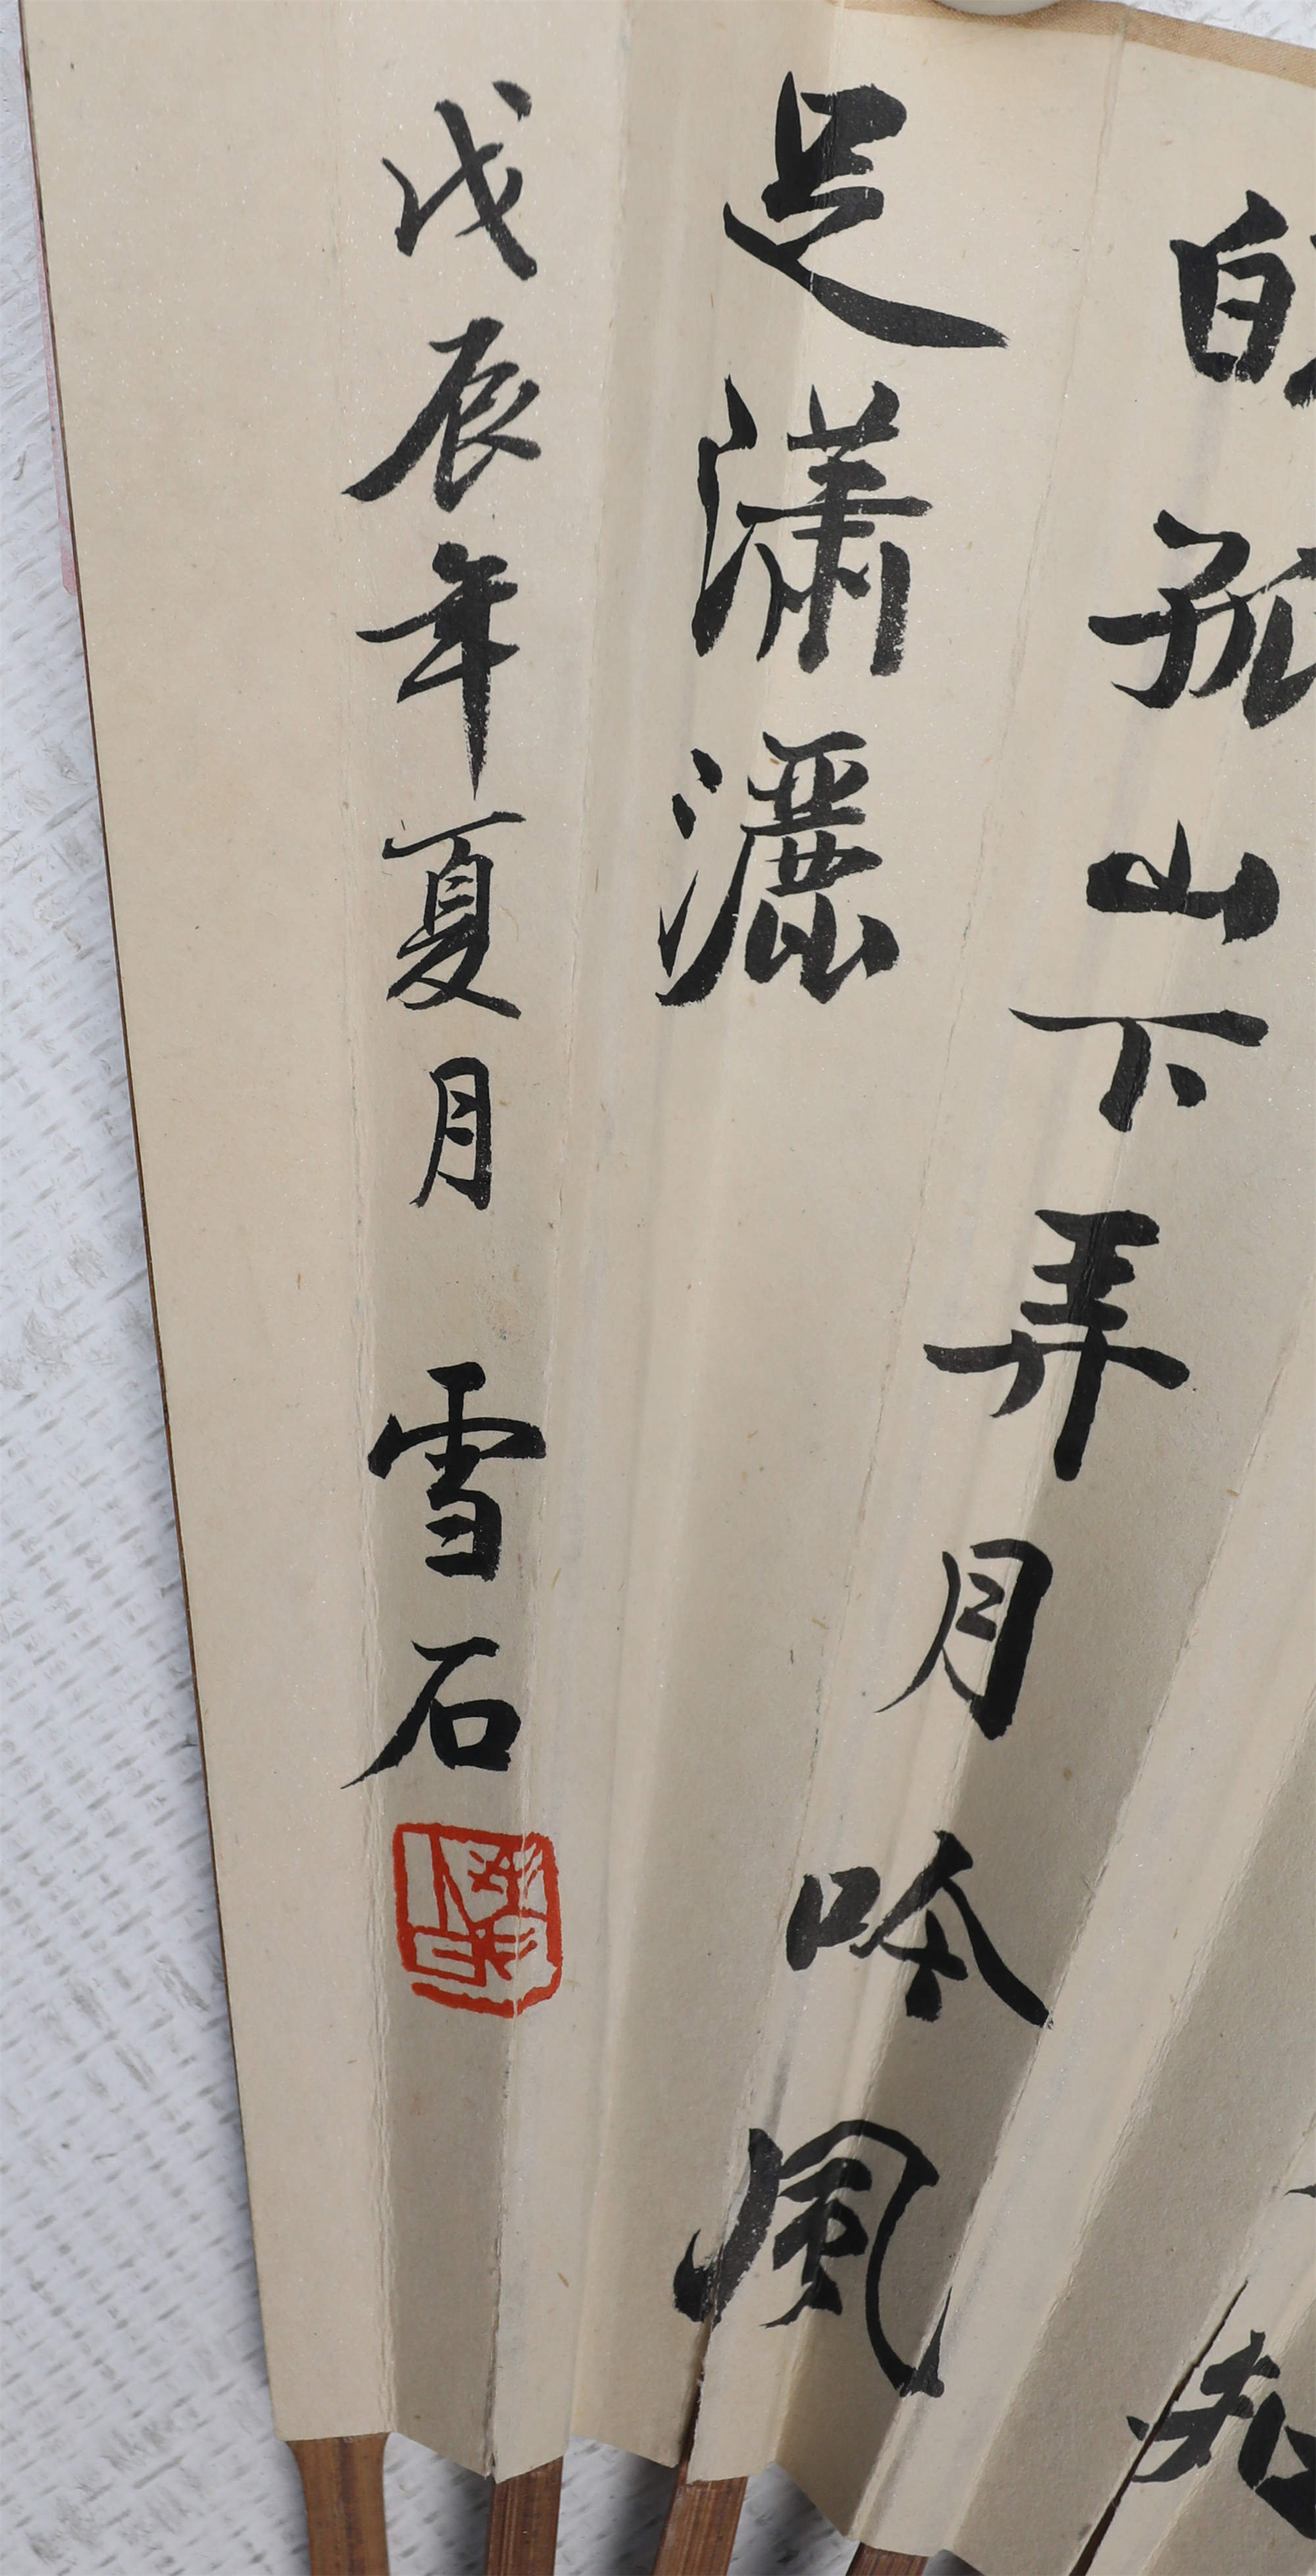 孤山下弄月吟風
足瀟灑
戊辰年夏月 雪石